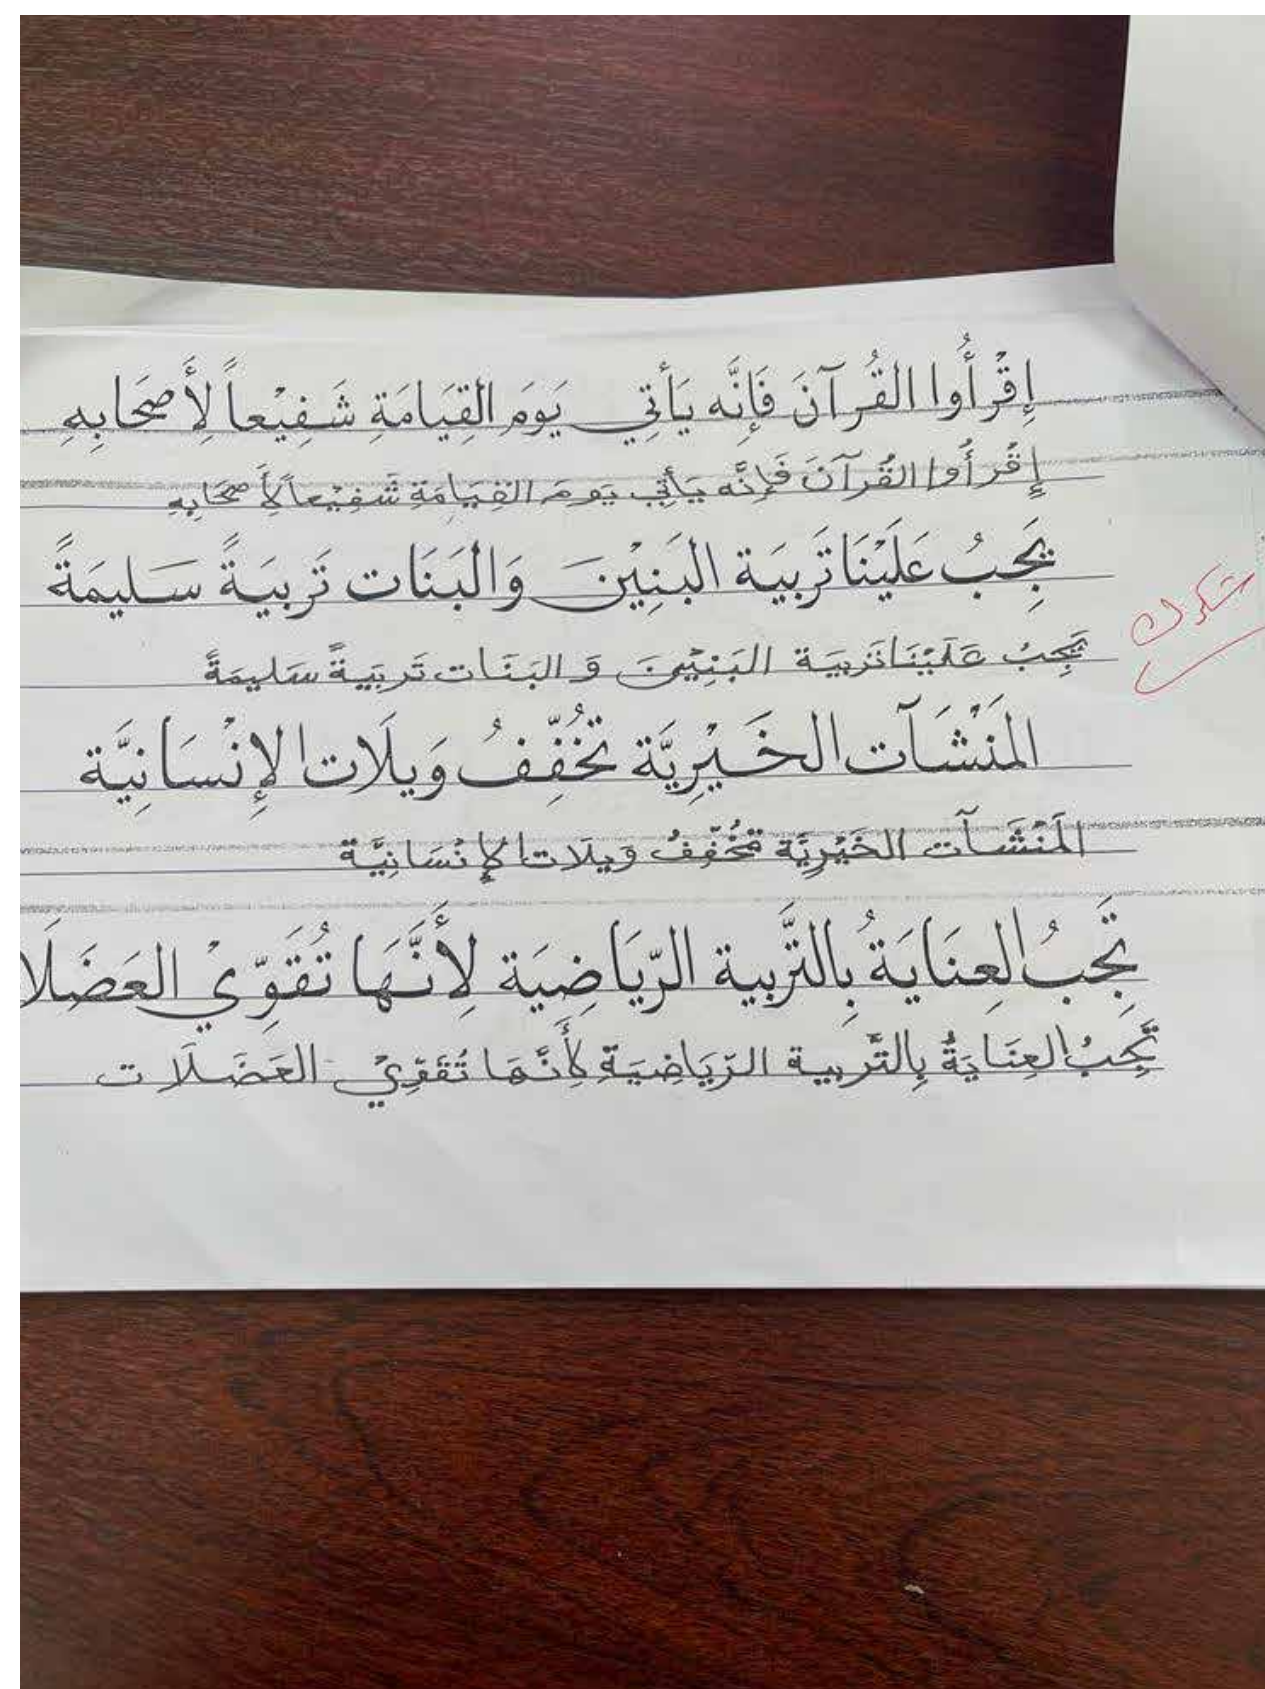 إِقْرَأُوا القُرآنَ فَإِنَّه يَأتي يَومَ القِيَامَةِ شَفِيْعاً لِأَصحَابِهِ
إِقْرَأُوا القُرآنَ فَإِنَّه يَأتي يَومَ القِيَامَةِ شَفِيْعاً لِأَصحَابِهِ
يَجِبُ عَلَيْنَا تَربِيَة البَنِيْنَ وَالبَنَات تَربِيَةً سَليمَةً
يَجِبُ عَلَيْنَا تَربِيَة البَنِيْنَ وَالبَنَات تَربِيَةً سَليمَةً
شكرك
المَنْشَآت الخَيْرِيَّة تُخَفِّفُ وَيلَات الإِنْسَانِيَّة
المَنْشَآت الخَيْرِيَّة تُخَفِّفُ وَيلَات الإِنْسَانِيَّة
تَجِبُ العِنَايَةُ بِالتَّربية الرّيَاضِيَة لِأَنَّهَا تُقَوِّيْ العَضَلَا
تَجِبُ العِنَايَةُ بِالتَّربية الرّيَاضِيَة لِأَنَّهَا تُقَوِّيْ العَضَلَات